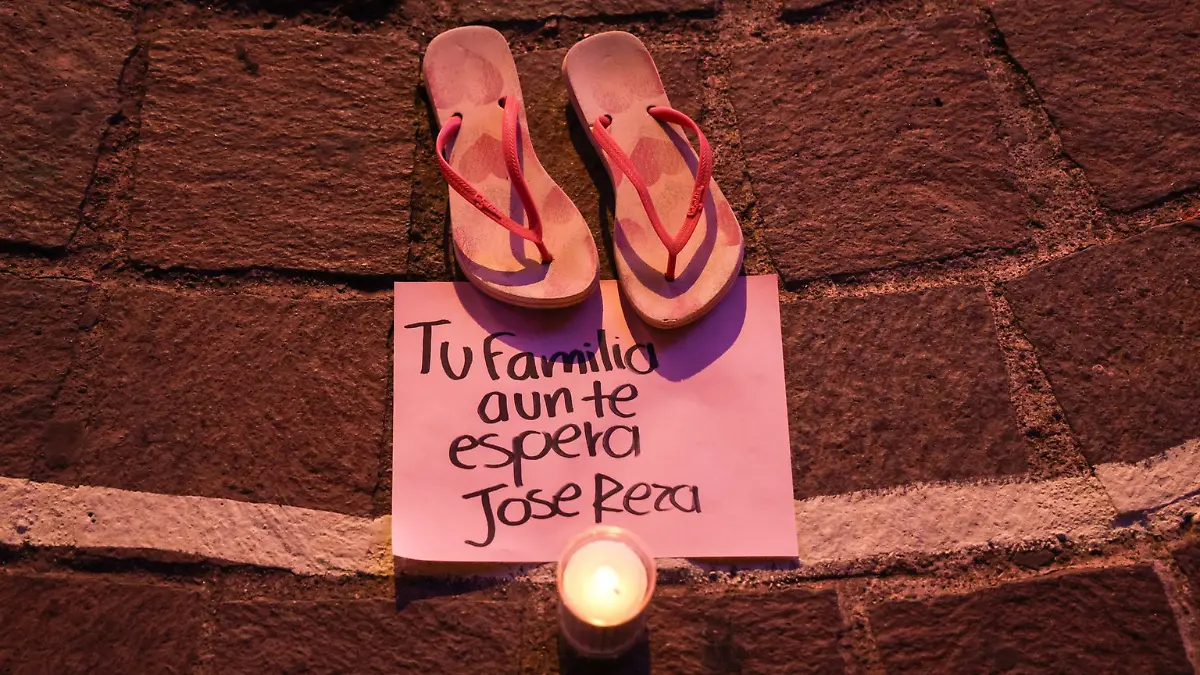 Tu familia
aun te
espera
Jose Reza